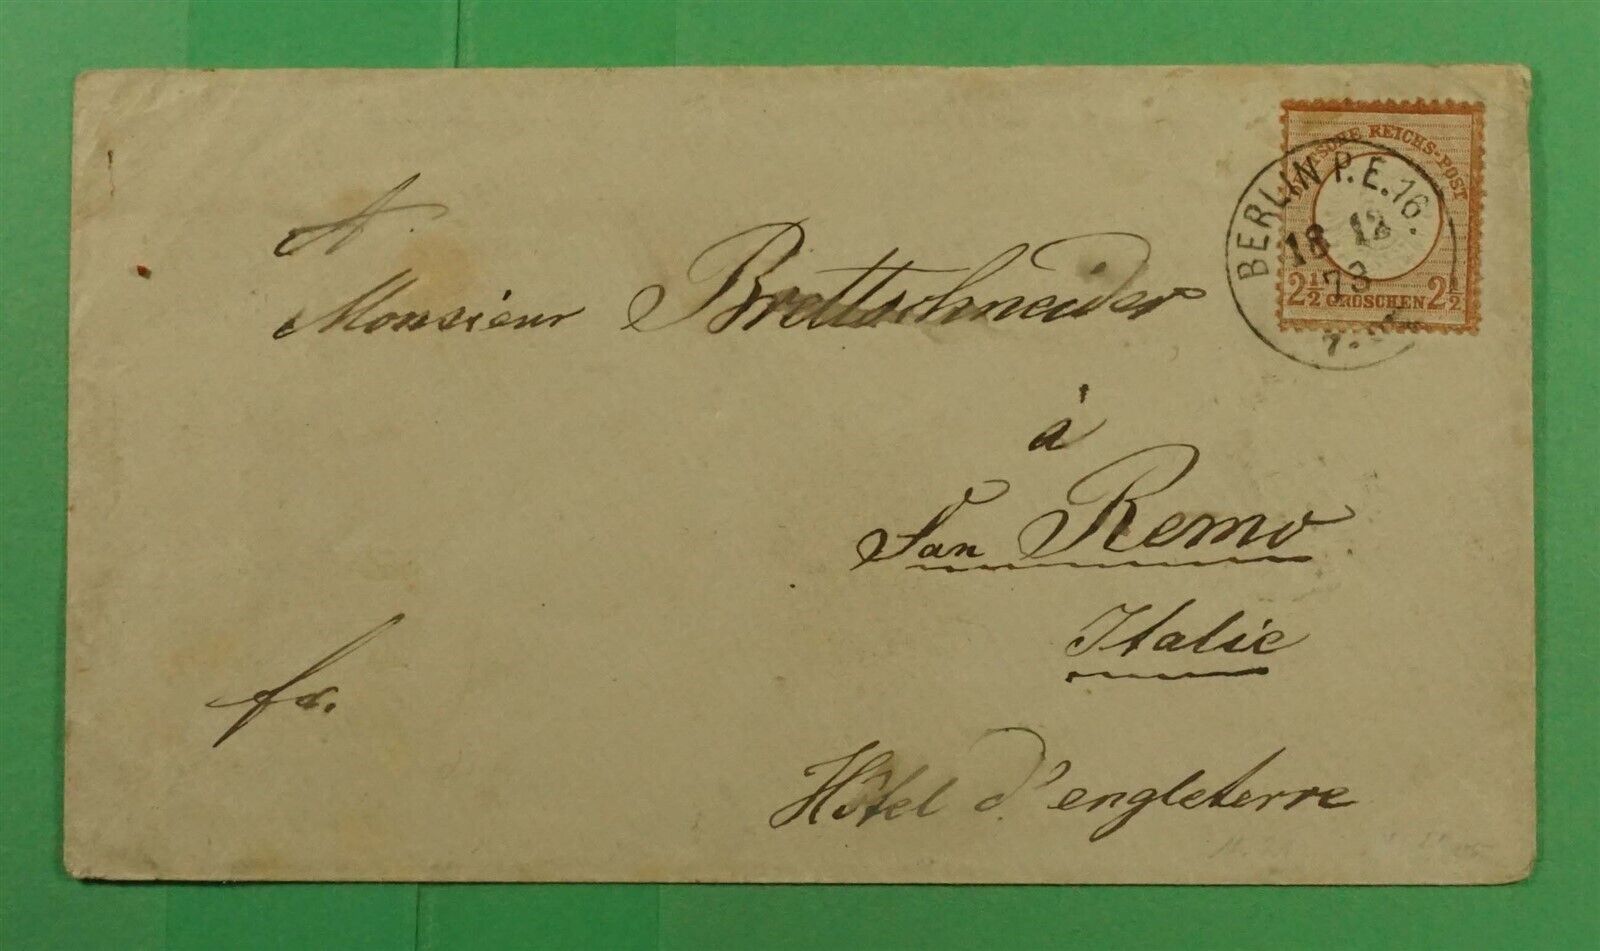 DEUTSCHE REICHS-POST
2½ GROSCHEN 2½
BERLIN P.E.16.
18 12
73
A.
Monsieur Brettschneider
à
San Remo
Italie
fr.
Hôtel d'engleterre